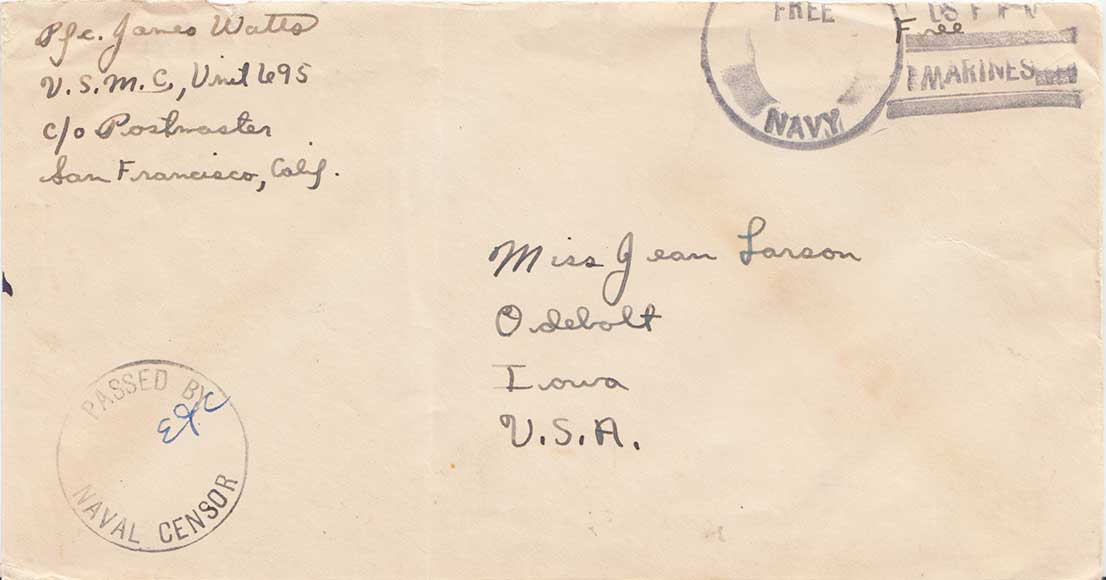 Pfc. James Watts
U.S.M.C., Unit 695
c/o Postmaster
San Francisco, Calif.
FREE
NAVY
Free
MARINES
Miss Jean Larson
Odebolt
Iowa
U.S.A.
PASSED BY
NAVAL CENSOR